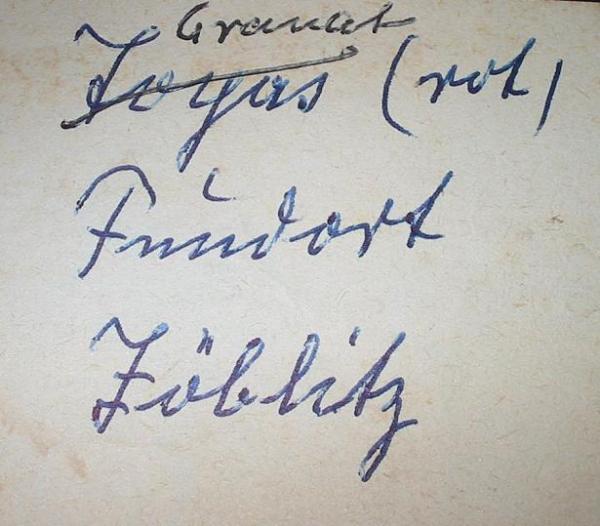 Granat
Topas (rot)
Fundort
Zöblitz